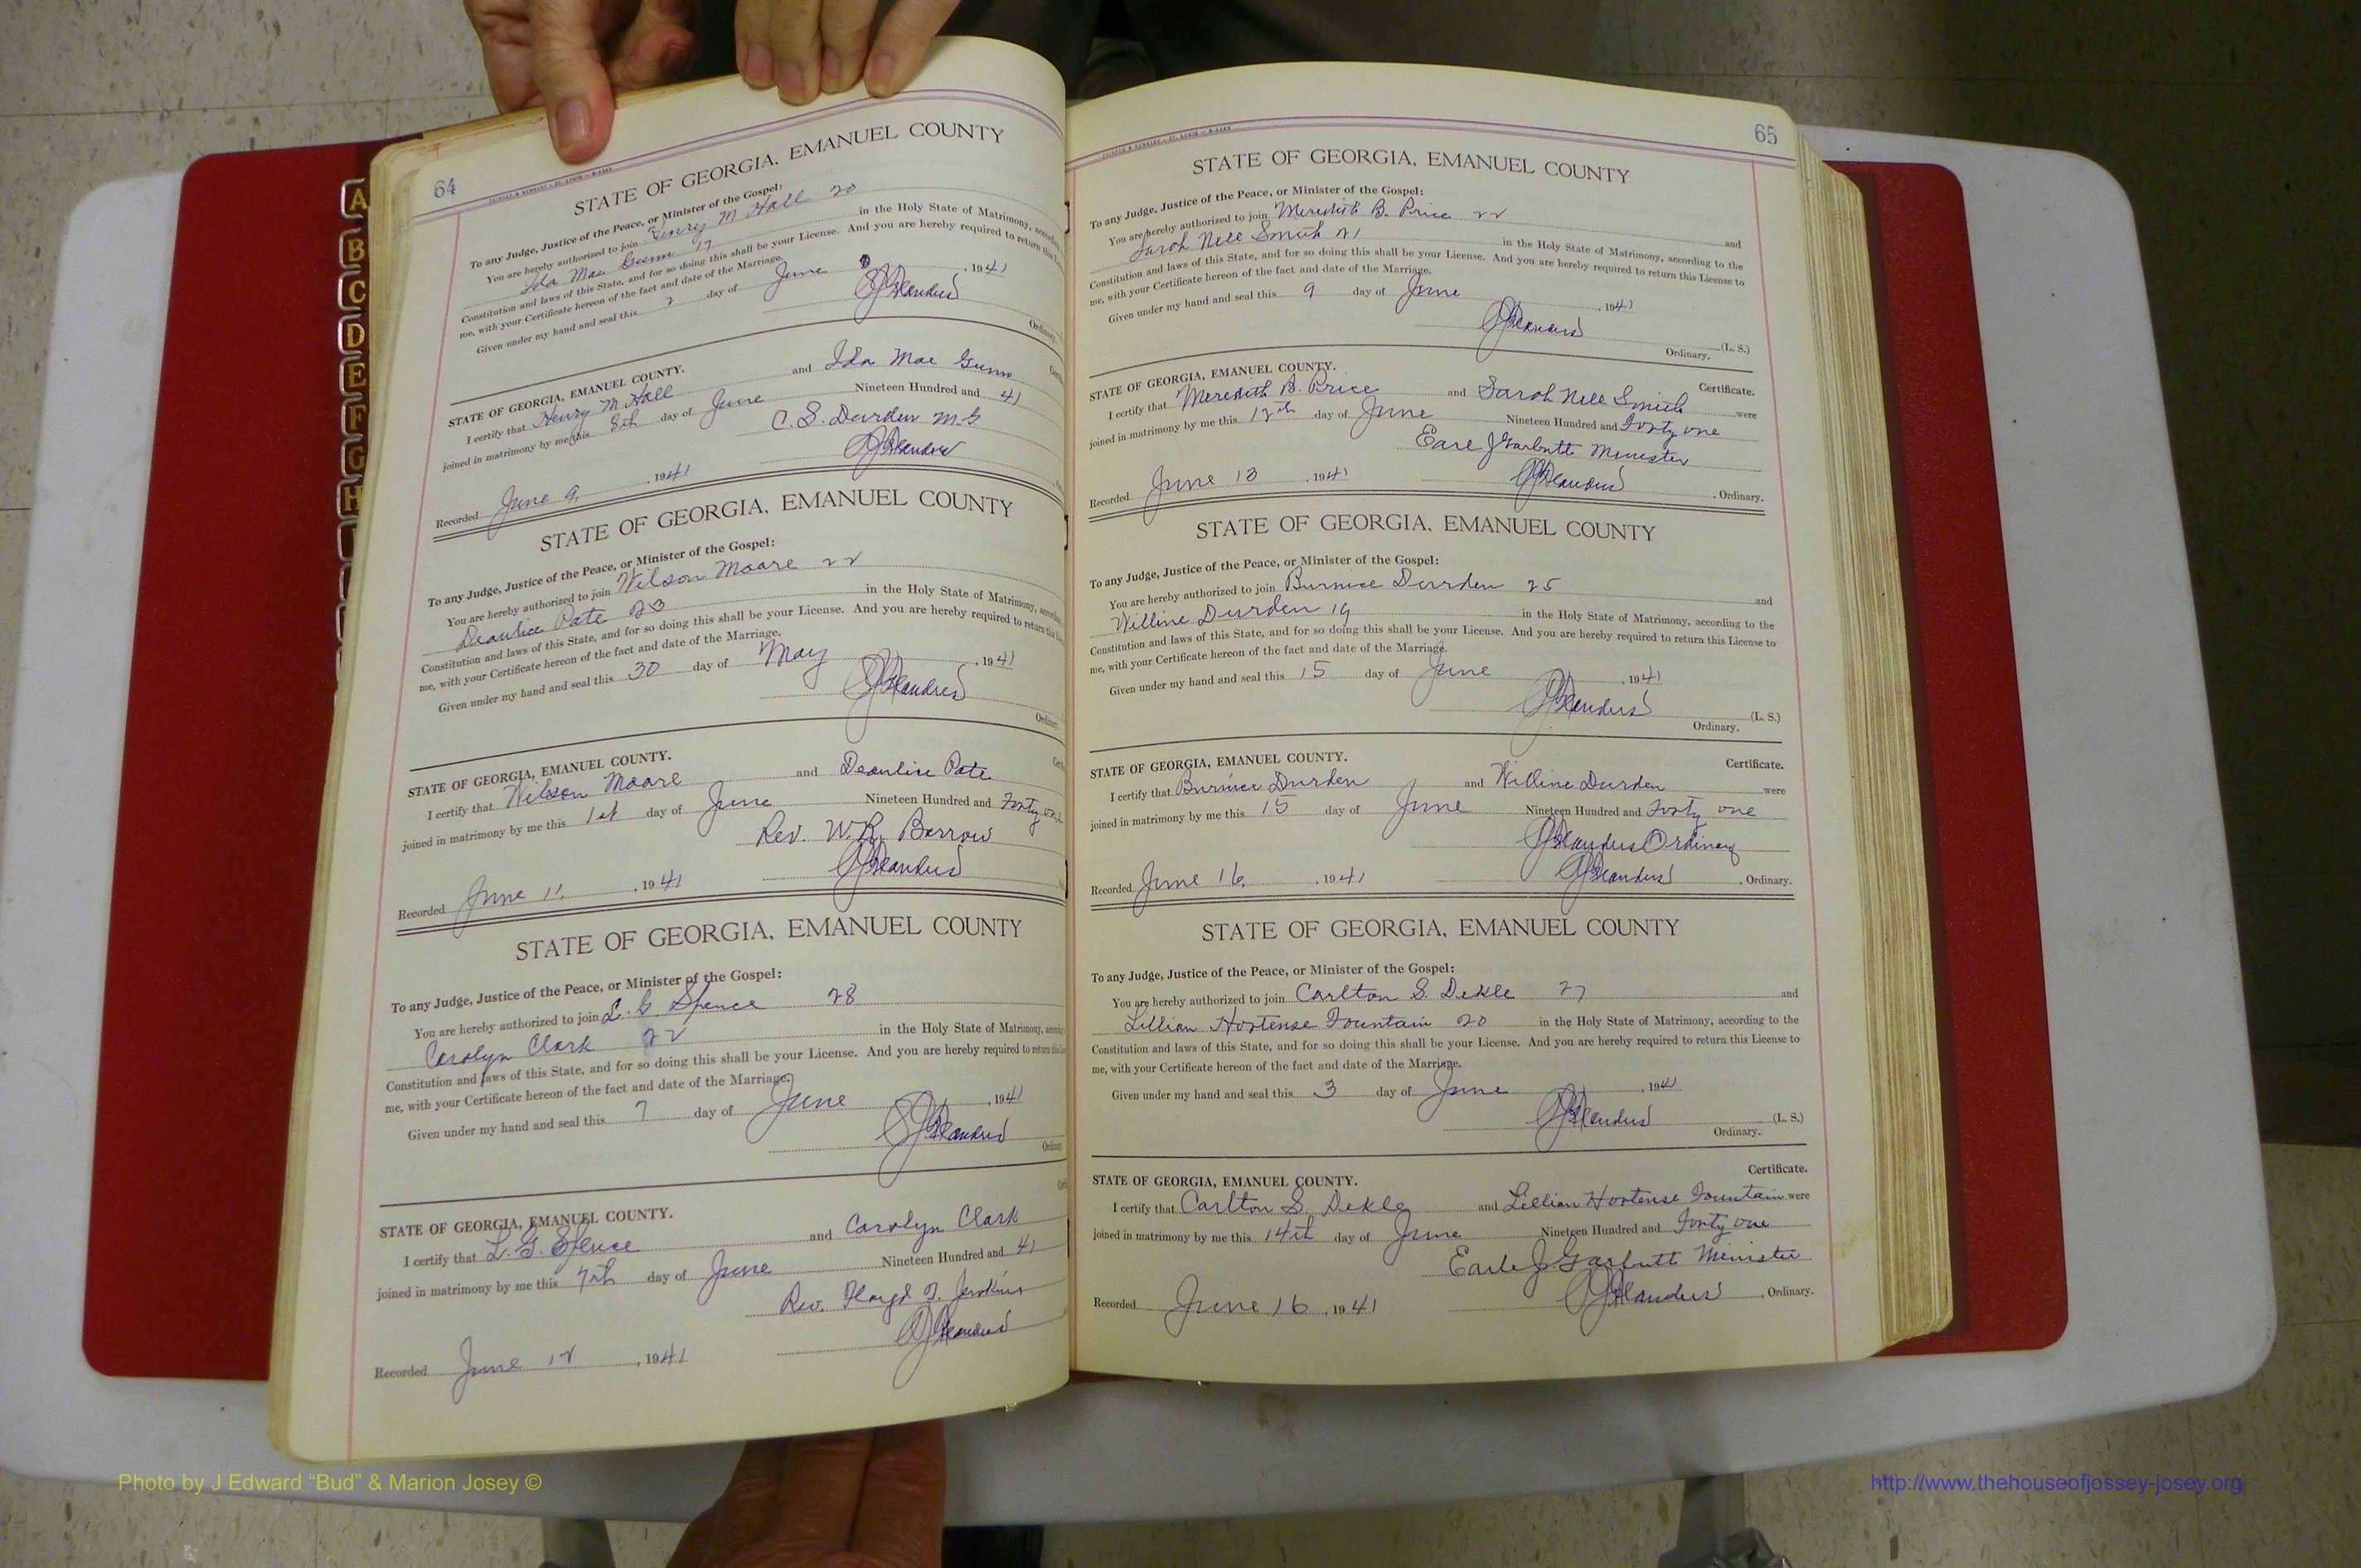 64
STATE OF GEORGIA, EMANUEL COUNTY
To any Judge, Justice of the Peace, or Minister of the Gospel:
You are hereby authorized to join Henry M Hall 20
Ida Mae Gunn 17 in the Holy State of Matrimony,
Constitution and laws of this State, and for so doing this shall be your License. And you are hereby required to return
me, with your Certificate hereon of the fact and date of the Marriage.
Given under my hand and seal this 2 day of June, 1941
Ordinary.
STATE OF GEORGIA, EMANUEL COUNTY.
I certify that Henry M Hall and Ida Mae Gunn
joined in matrimony by me this 8th day of June Nineteen Hundred and 41
C. S. Durden M.G
Recorded June 9, 1941
STATE OF GEORGIA, EMANUEL COUNTY
To any Judge, Justice of the Peace, or Minister of the Gospel:
You are hereby authorized to join Wilson Moare 22
Pate 23 in the Holy State of Matrimony,
Constitution and laws of this State, and for so doing this shall be your License. And you are hereby required to return this
me, with your Certificate hereon of the fact and date of the Marriage.
Given under my hand and seal this 30 day of May, 1941
Ordinary.
STATE OF GEORGIA, EMANUEL COUNTY.
I certify that Wilson Moare and Pate
joined in matrimony by me this 1st day of June Nineteen Hundred and Forty one
Rev. W. R. Barrow
Recorded June 11, 1941
STATE OF GEORGIA, EMANUEL COUNTY
To any Judge, Justice of the Peace, or Minister of the Gospel:
You are hereby authorized to join L. G. Spence 28
Carolyn Clark 22 in the Holy State of Matrimony,
Constitution and laws of this State, and for so doing this shall be your License. And you are hereby required to return
me, with your Certificate hereon of the fact and date of the Marriage.
Given under my hand and seal this 7 day of June, 1941
STATE OF GEORGIA, EMANUEL COUNTY.
I certify that L. G. Spence and Carolyn Clark
joined in matrimony by me this 7th day of June Nineteen Hundred and 41
Rev. Floyd Jenkins
Recorded June 12, 1941
65
STATE OF GEORGIA, EMANUEL COUNTY
To any Judge, Justice of the Peace, or Minister of the Gospel:
You are hereby authorized to join Meredith B. Price 22 and
Sarah Nell Smith 21 in the Holy State of Matrimony, according to the
Constitution and laws of this State, and for so doing this shall be your License. And you are hereby required to return this License to
me, with your Certificate hereon of the fact and date of the Marriage.
Given under my hand and seal this 9 day of June, 1941
(L. S.)
Ordinary.
STATE OF GEORGIA, EMANUEL COUNTY. Certificate.
I certify that Meredith B. Price and Sarah Nell Smith were
joined in matrimony by me this 12th day of June Nineteen Hundred and Forty one
Earl J Garbutt Minister
Recorded June 13, 1941 , Ordinary.
STATE OF GEORGIA, EMANUEL COUNTY
To any Judge, Justice of the Peace, or Minister of the Gospel:
You are hereby authorized to join Burnice Durden 25 and
Willine Durden 19 in the Holy State of Matrimony, according to the
Constitution and laws of this State, and for so doing this shall be your License. And you are hereby required to return this License to
me, with your Certificate hereon of the fact and date of the Marriage.
Given under my hand and seal this 15 day of June, 1941
(L. S.)
Ordinary.
STATE OF GEORGIA, EMANUEL COUNTY. Certificate.
I certify that Burnice Durden and Willine Durden were
joined in matrimony by me this 15 day of June Nineteen Hundred and Forty one
Ordinary
Recorded June 16, 1941 , Ordinary.
STATE OF GEORGIA, EMANUEL COUNTY
To any Judge, Justice of the Peace, or Minister of the Gospel:
You are hereby authorized to join Carlton S. Dekle 27 and
Lillian Hortense Fountain 20 in the Holy State of Matrimony, according to the
Constitution and laws of this State, and for so doing this shall be your License. And you are hereby required to return this License to
me, with your Certificate hereon of the fact and date of the Marriage.
Given under my hand and seal this 3 day of June, 1941
(L. S.)
Ordinary.
Certificate.
STATE OF GEORGIA, EMANUEL COUNTY.
I certify that Carlton S. Dekle and Lillian Hortense Fountain were
joined in matrimony by me this 14th day of June Nineteen Hundred and Forty one
Earle J Garbutt Minister
Recorded June 16, 1941 , Ordinary.
A
B
C
D
E
F
G
H
Photo by J Edward “Bud” & Marion Josey ©
http://www.thehouseofjossey-josey.org